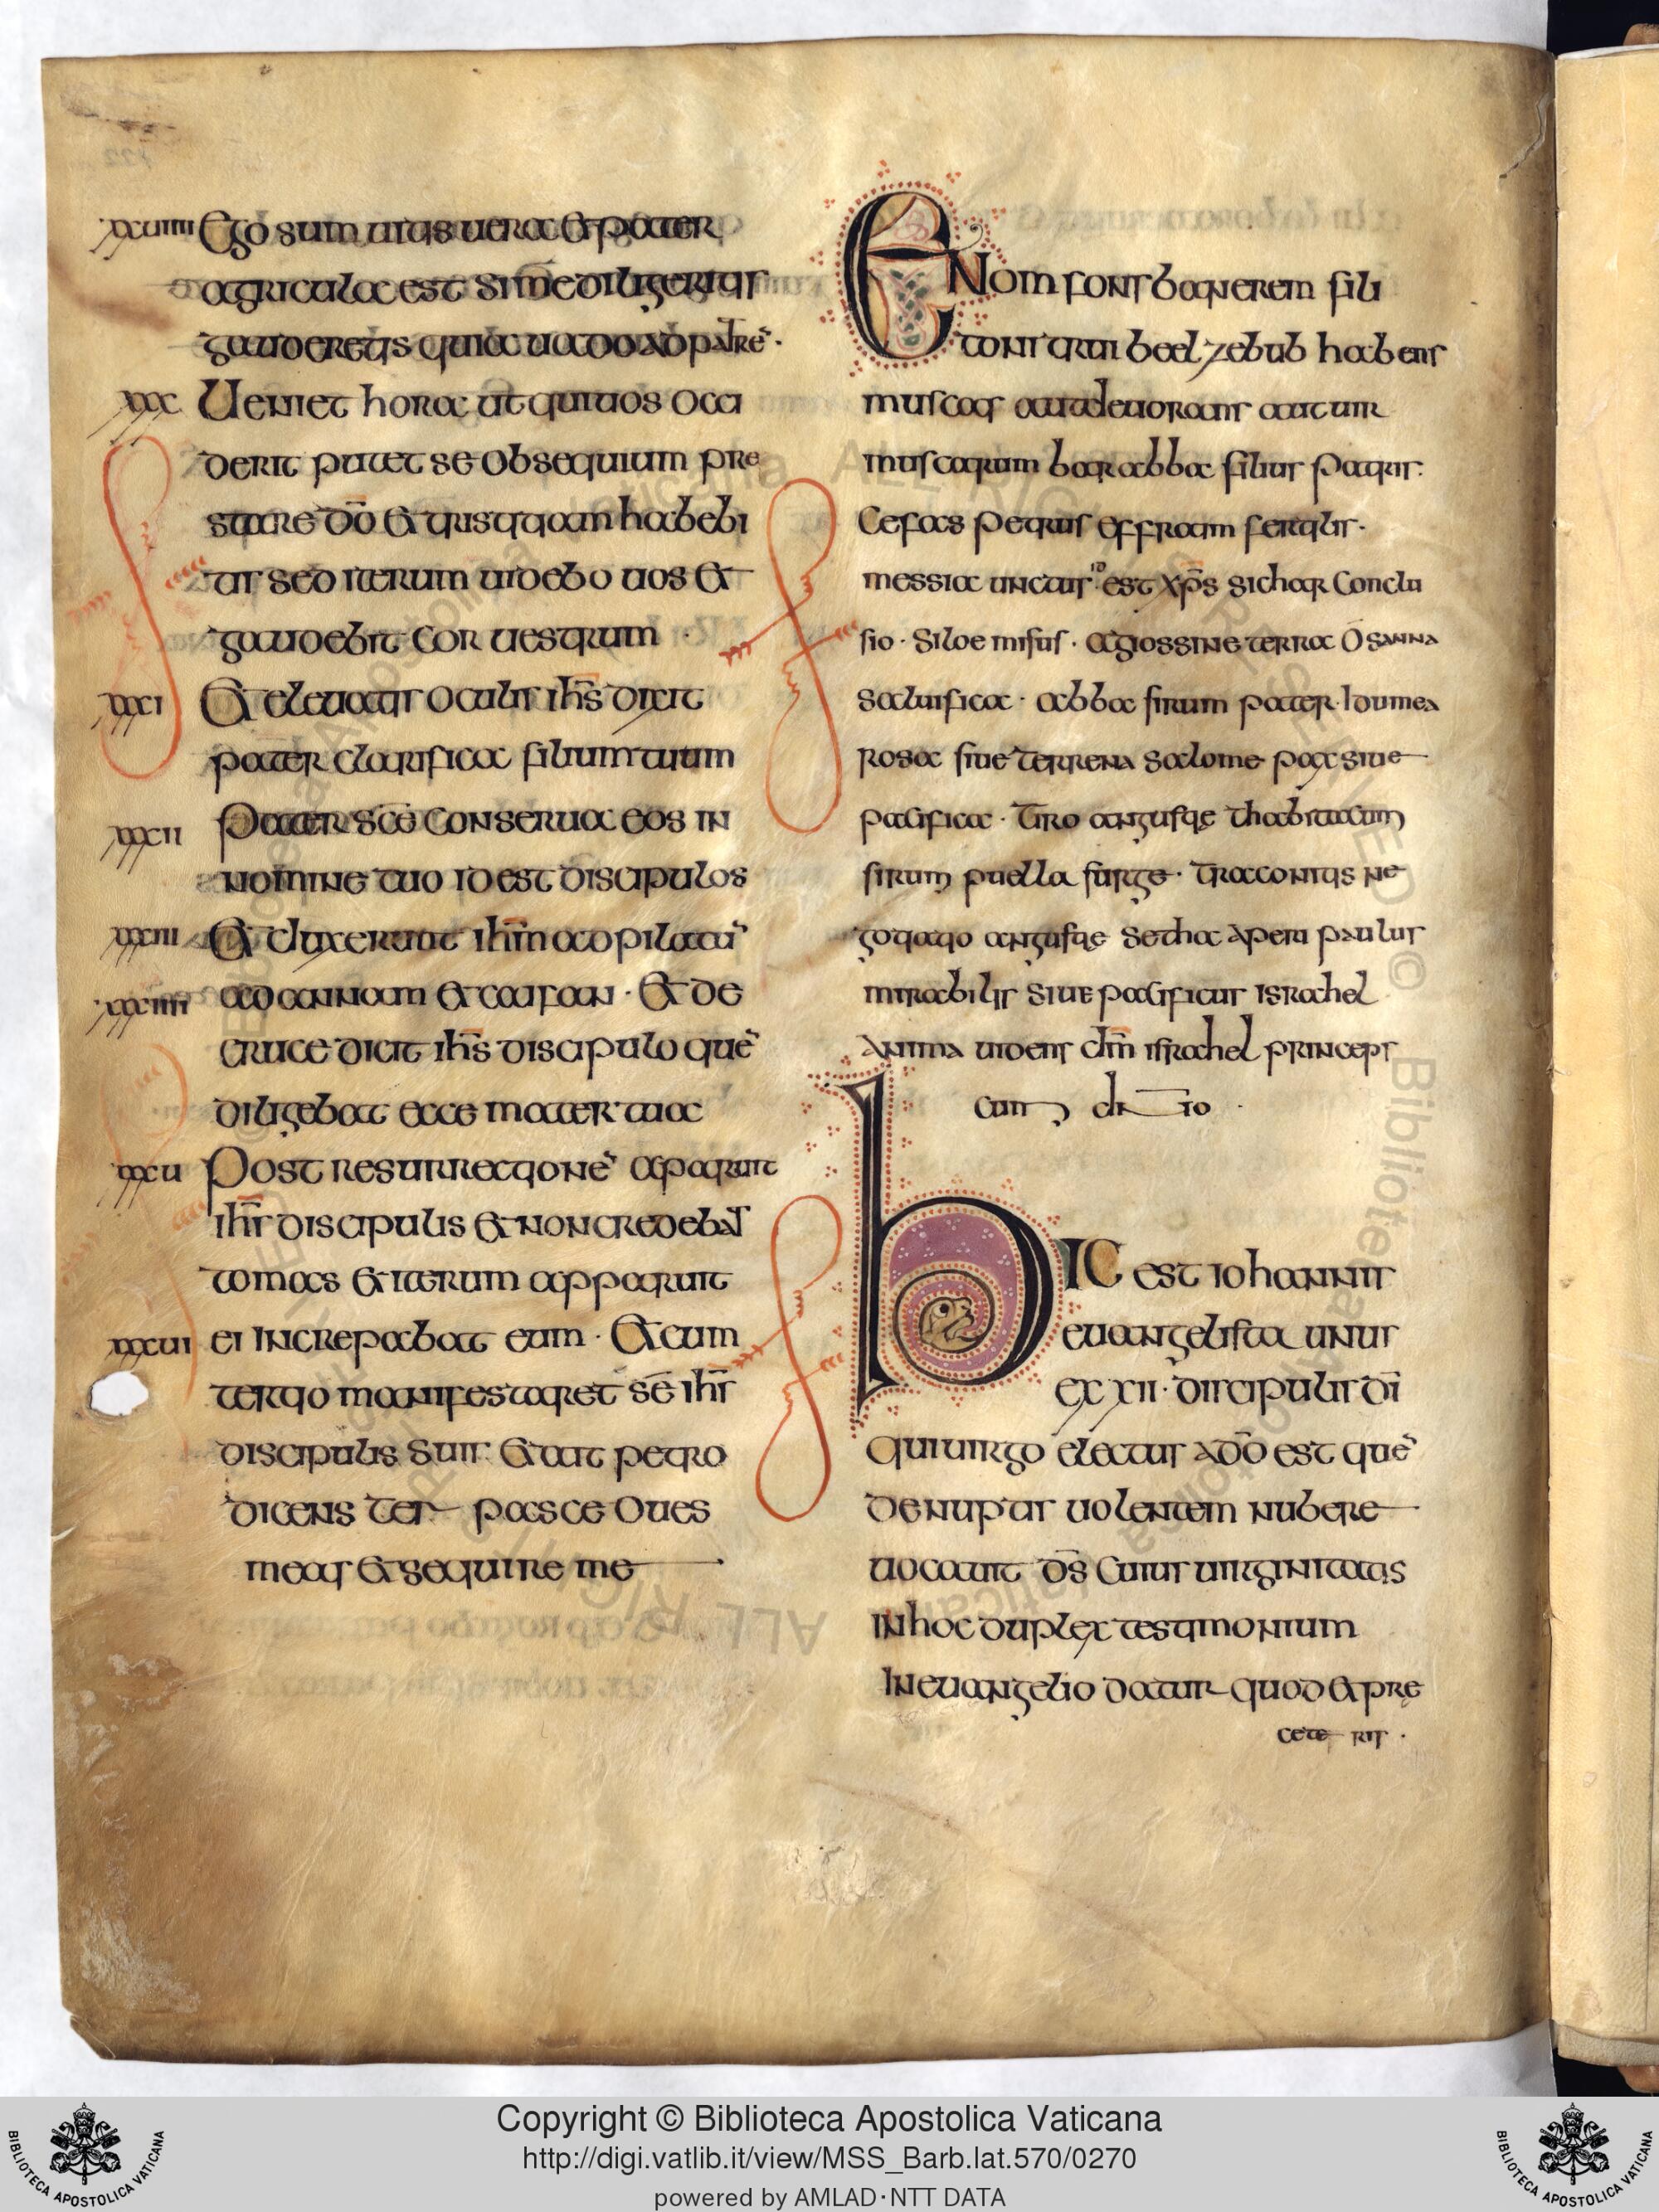 xxuiiii Ego sum uitis uera et pater
agricula est si me diligeritis
gauderetis quia uado ad patrē·
xxx Ueniet hora ut qui uos occi
derit putet se obsequium pre
stare dō et tristitiam habebi
tis sed iterum uidebo uos et
gaudebit cor uestrum ·
xxxi Et eleuatis oculis ihs̄ dixit
pater clarifica filium tuum
xxxii Pater scē conserua eos in
nomine tuo id est discipulos
xxxiii Et duxerunt ihm̄ ad pilatū
xxxiiii ad annam et caifan · Et de
cruce dicit ihs̄ discipulo quē
diligebat ecce mater tua
xxxu Post resurrectionē aparuit
ihs̄ discipulis et non credebat
tomas et iterum apparuit
xxxui ei increpabat eum · Et cum
tertio manifestaret sē ihs̄
discipulis suis Et dicit petro
dicens ter pasce oues
meas et sequire me
Enom fons barierem fili
tonitrui beelzebub habens
muscas aut deuorans aut uir
muscarum barabba filius patris·
Cefas petrus effraim fertilis·
messia unctus id est xp̄s sichar conclu
sio · Siloe misus · agiossine terra Osanna
saluifica · abba sirum pater · Idumea
rosa siue terrena salome pax siue
pacifica · Tiro angustie thabitacum
sirum puella surge · Traconitis ne
gotiatio angustie Setha aperi paulus
mirabilis siue pacificus israhel
anima uidens dm̄ israhel princeps
cum dō
hIC est iohannis
euangelista unus
ex xii · discipulis dī
qui uirgo electus a dō est quē
de nuptis uolentem nubere
uocauit ds̄ cuius uirginitatis
in hoc duplex testimonium
in euangelio datur quod et pre
ceteris ·
Copyright © Biblioteca Apostolica Vaticana
http://digi.vatlib.it/view/MSS_Barb.lat.570/0270
powered by AMLAD·NTT DATA
BIBLIOTECA APOSTOLICA VATICANA
BIBLIOTECA APOSTOLICA VATICANA